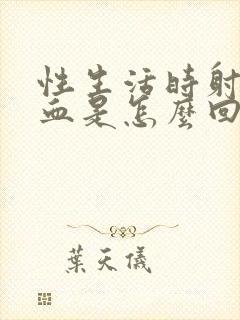 性生活時射
血是怎麼回
葉天儀